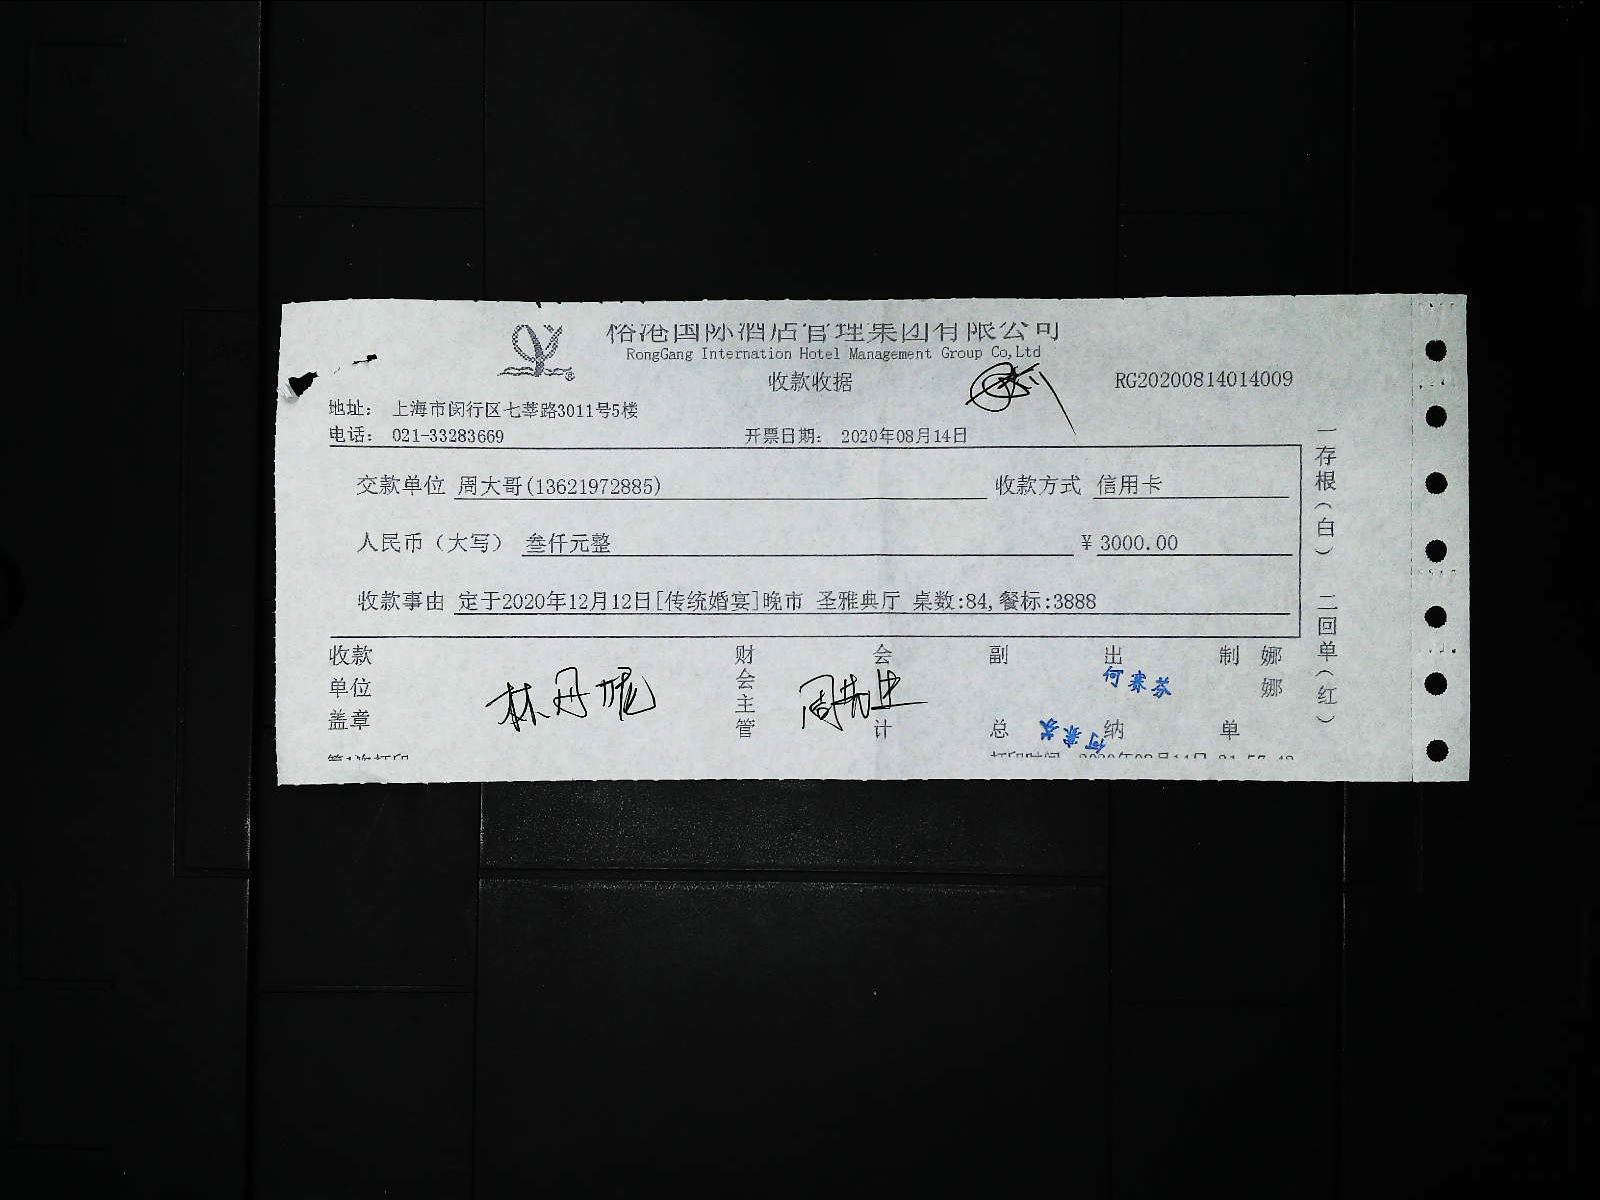 裕港国际酒店管理集团有限公司
RongGang Internation Hotel Management Group Co,Ltd
收款收据
RG20200814014009
地址： 上海市闵行区七莘路3011号5楼
电话： 021-33283669
开票日期： 2020年08月14日
交款单位 周大哥(13621972885) 收款方式 信用卡
人民币（大写） 叁仟元整 ¥ 3000.00
收款事由 定于2020年12月12日[传统婚宴]晚市 圣雅典厅 桌数:84,餐标:3888
一存根（白） 二回单（红）
收款单位盖章
财会主管
会计
周先生
副总
出纳
何赛芬
何赛芬
制单
娜娜
第1次打印
打印时间 2020年08月14日 21:57:42